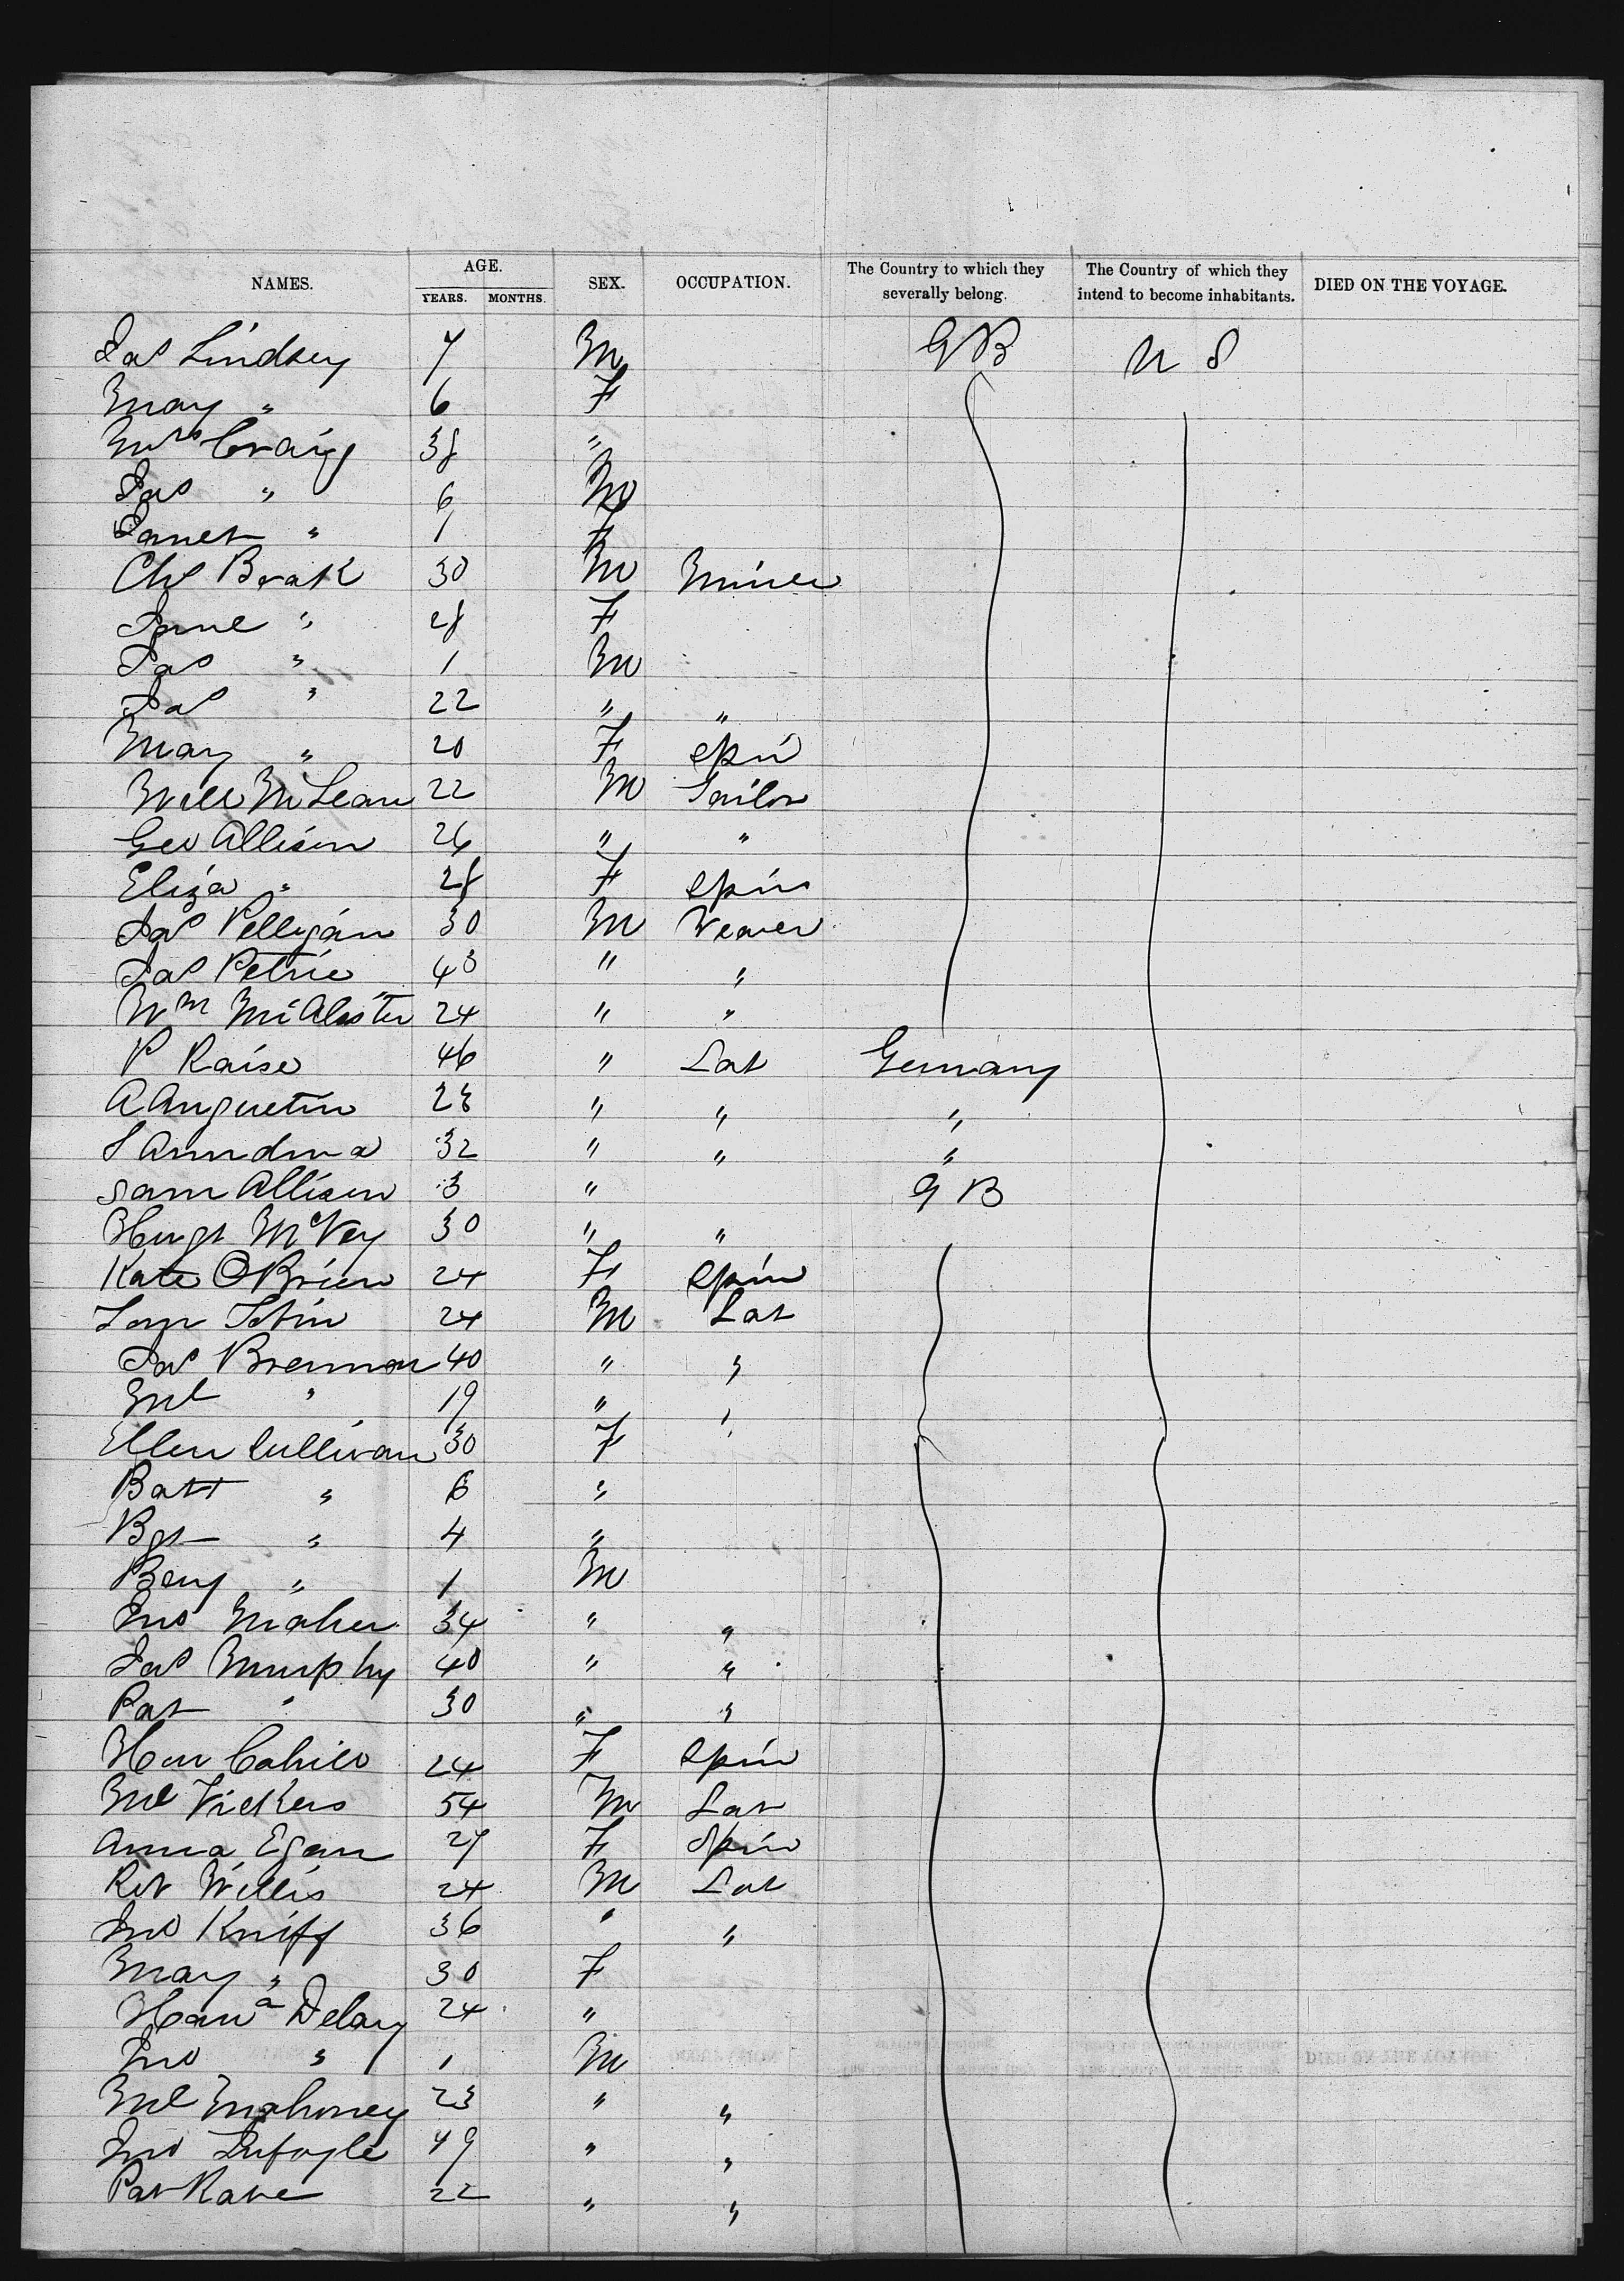 NAMES. AGE. YEARS. MONTHS. SEX. OCCUPATION. The Country to which they severally belong. The Country of which they intend to become inhabitants. DIED ON THE VOYAGE.
Jas Lindsey 7 M G B U S
Mary " 6 F
Mrs Craig 38 "
Jas " 6 M
Janet " 1 F
Chs Brak 30 M Miner
Jane " 28 F
Jas " 1 M
Jas " 22 " "
Mary " 20 F Spin
Will McLean 22 M Tailor
Geo Allison 26 " "
Eliza " 28 F Spin
Jas Pelligan 30 M Weaver
Jas Petrie 43 " "
Wm McAlister 24 " "
P Kaise 46 " Lab Germany
A Anguetin 28 " " "
32 " " "
Sam Allison 3 " G B
Hugh McVey 30 " "
Kate OBrien 24 F Spin
Tom Tobin 24 M Lab
Jas Brennan 40 " "
Ml " 19 " "
Ellen Sullivan 30 F
Batt " 6 "
Bgt " 4 "
Benj " 1 M
Jno Maher 34 " "
Jas Murphy 40 " "
Pat " 30 " "
Han Cahill 24 F Spin
Ml Vickers 54 M Lab
Anna Egan 27 F Spin
Rob Willis 24 M Lab
Jno Kniff 36 " "
Mary " 30 F
Hana Delany 24 "
Jno " 1 M
Ml Mahoney 23 " "
Jno 49 " "
Pat Kane 22 " "